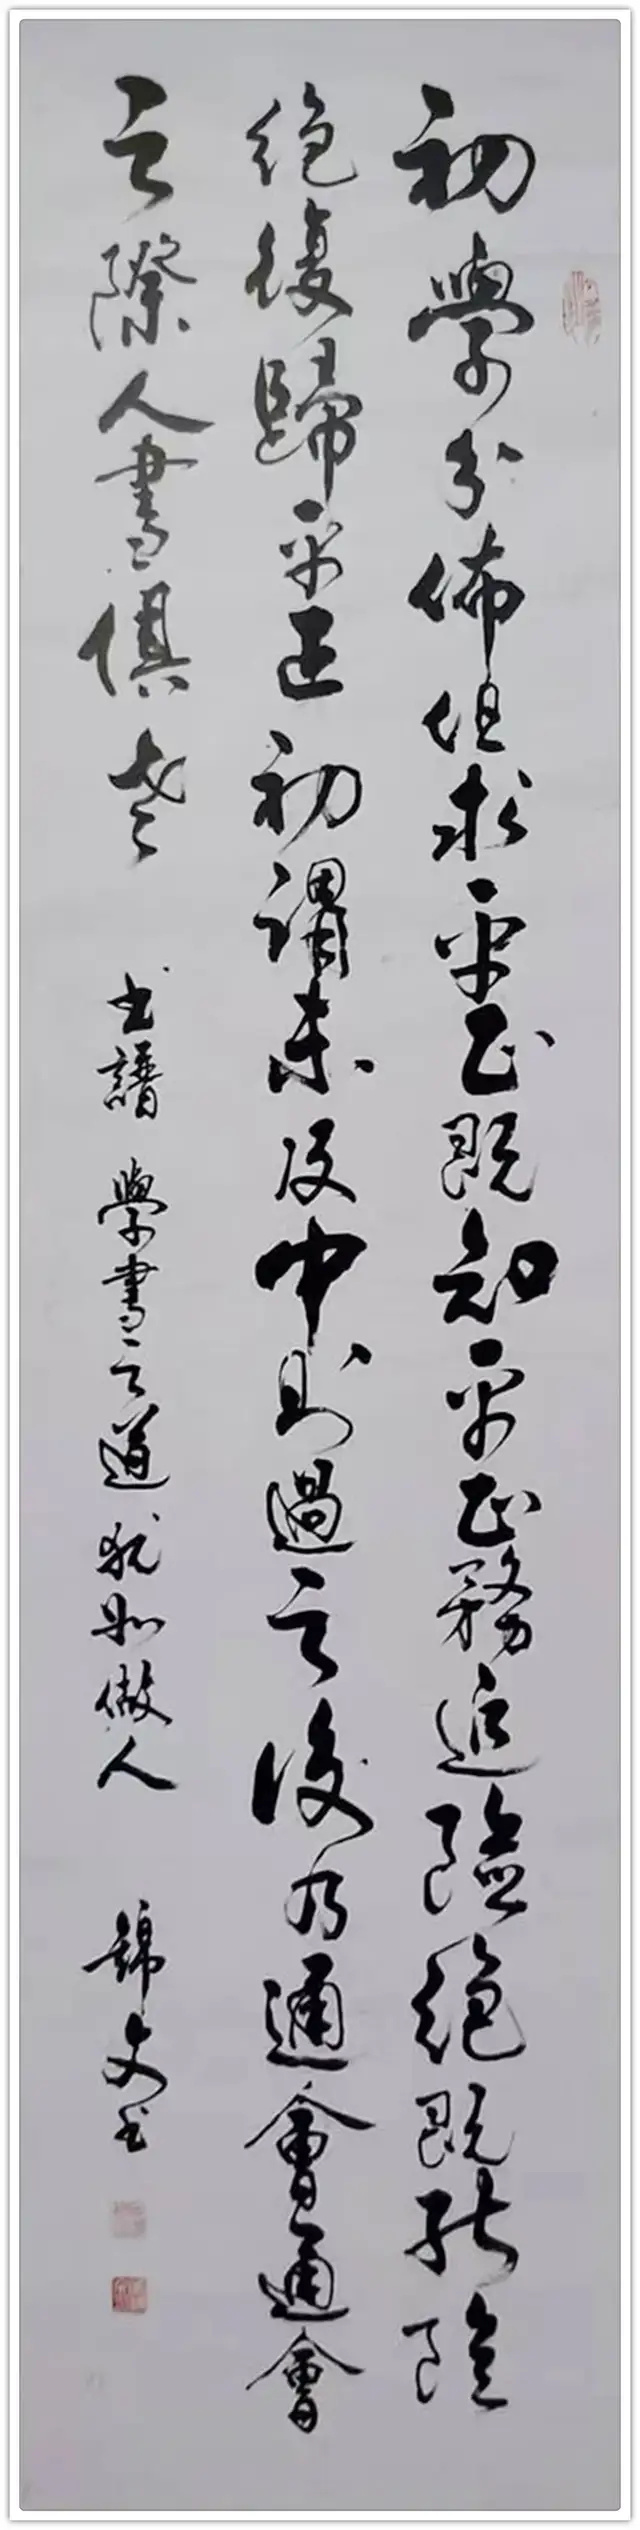 初學分佈但求平正既知平正務追險絕既能險
絕復歸平正初謂未及中則過之後乃通會通會
之際人書俱老
書譜 學書之道猶如做人
錦文書